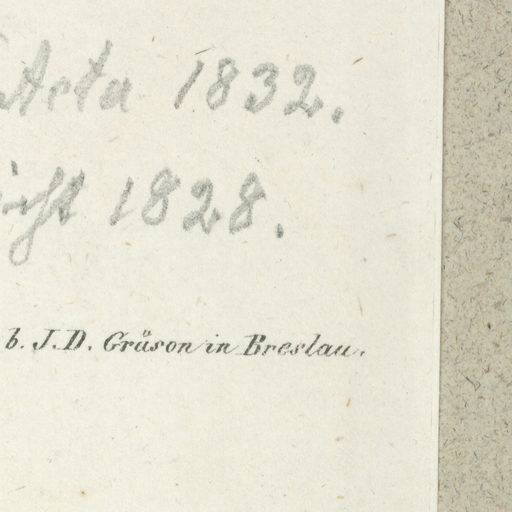 Acta 1832.
icht 1828.
b. J. D. Grüson in Breslau.